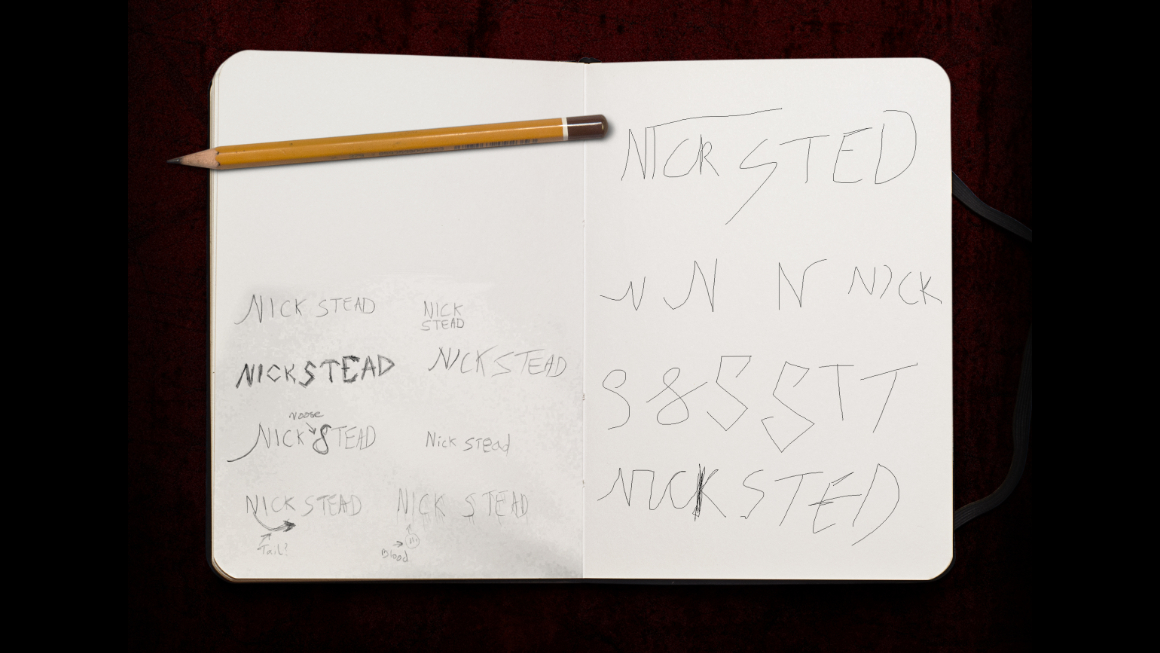 NICK STEAD
NICK
STEAD
NICK STEAD
NICK STEAD
Noose
NICK STEAD
Nick Stead
NICK STEAD
Tail!
NICK STEAD
Blood
NICK STED
N N N NICK
S 8 S S T T
NICK STED